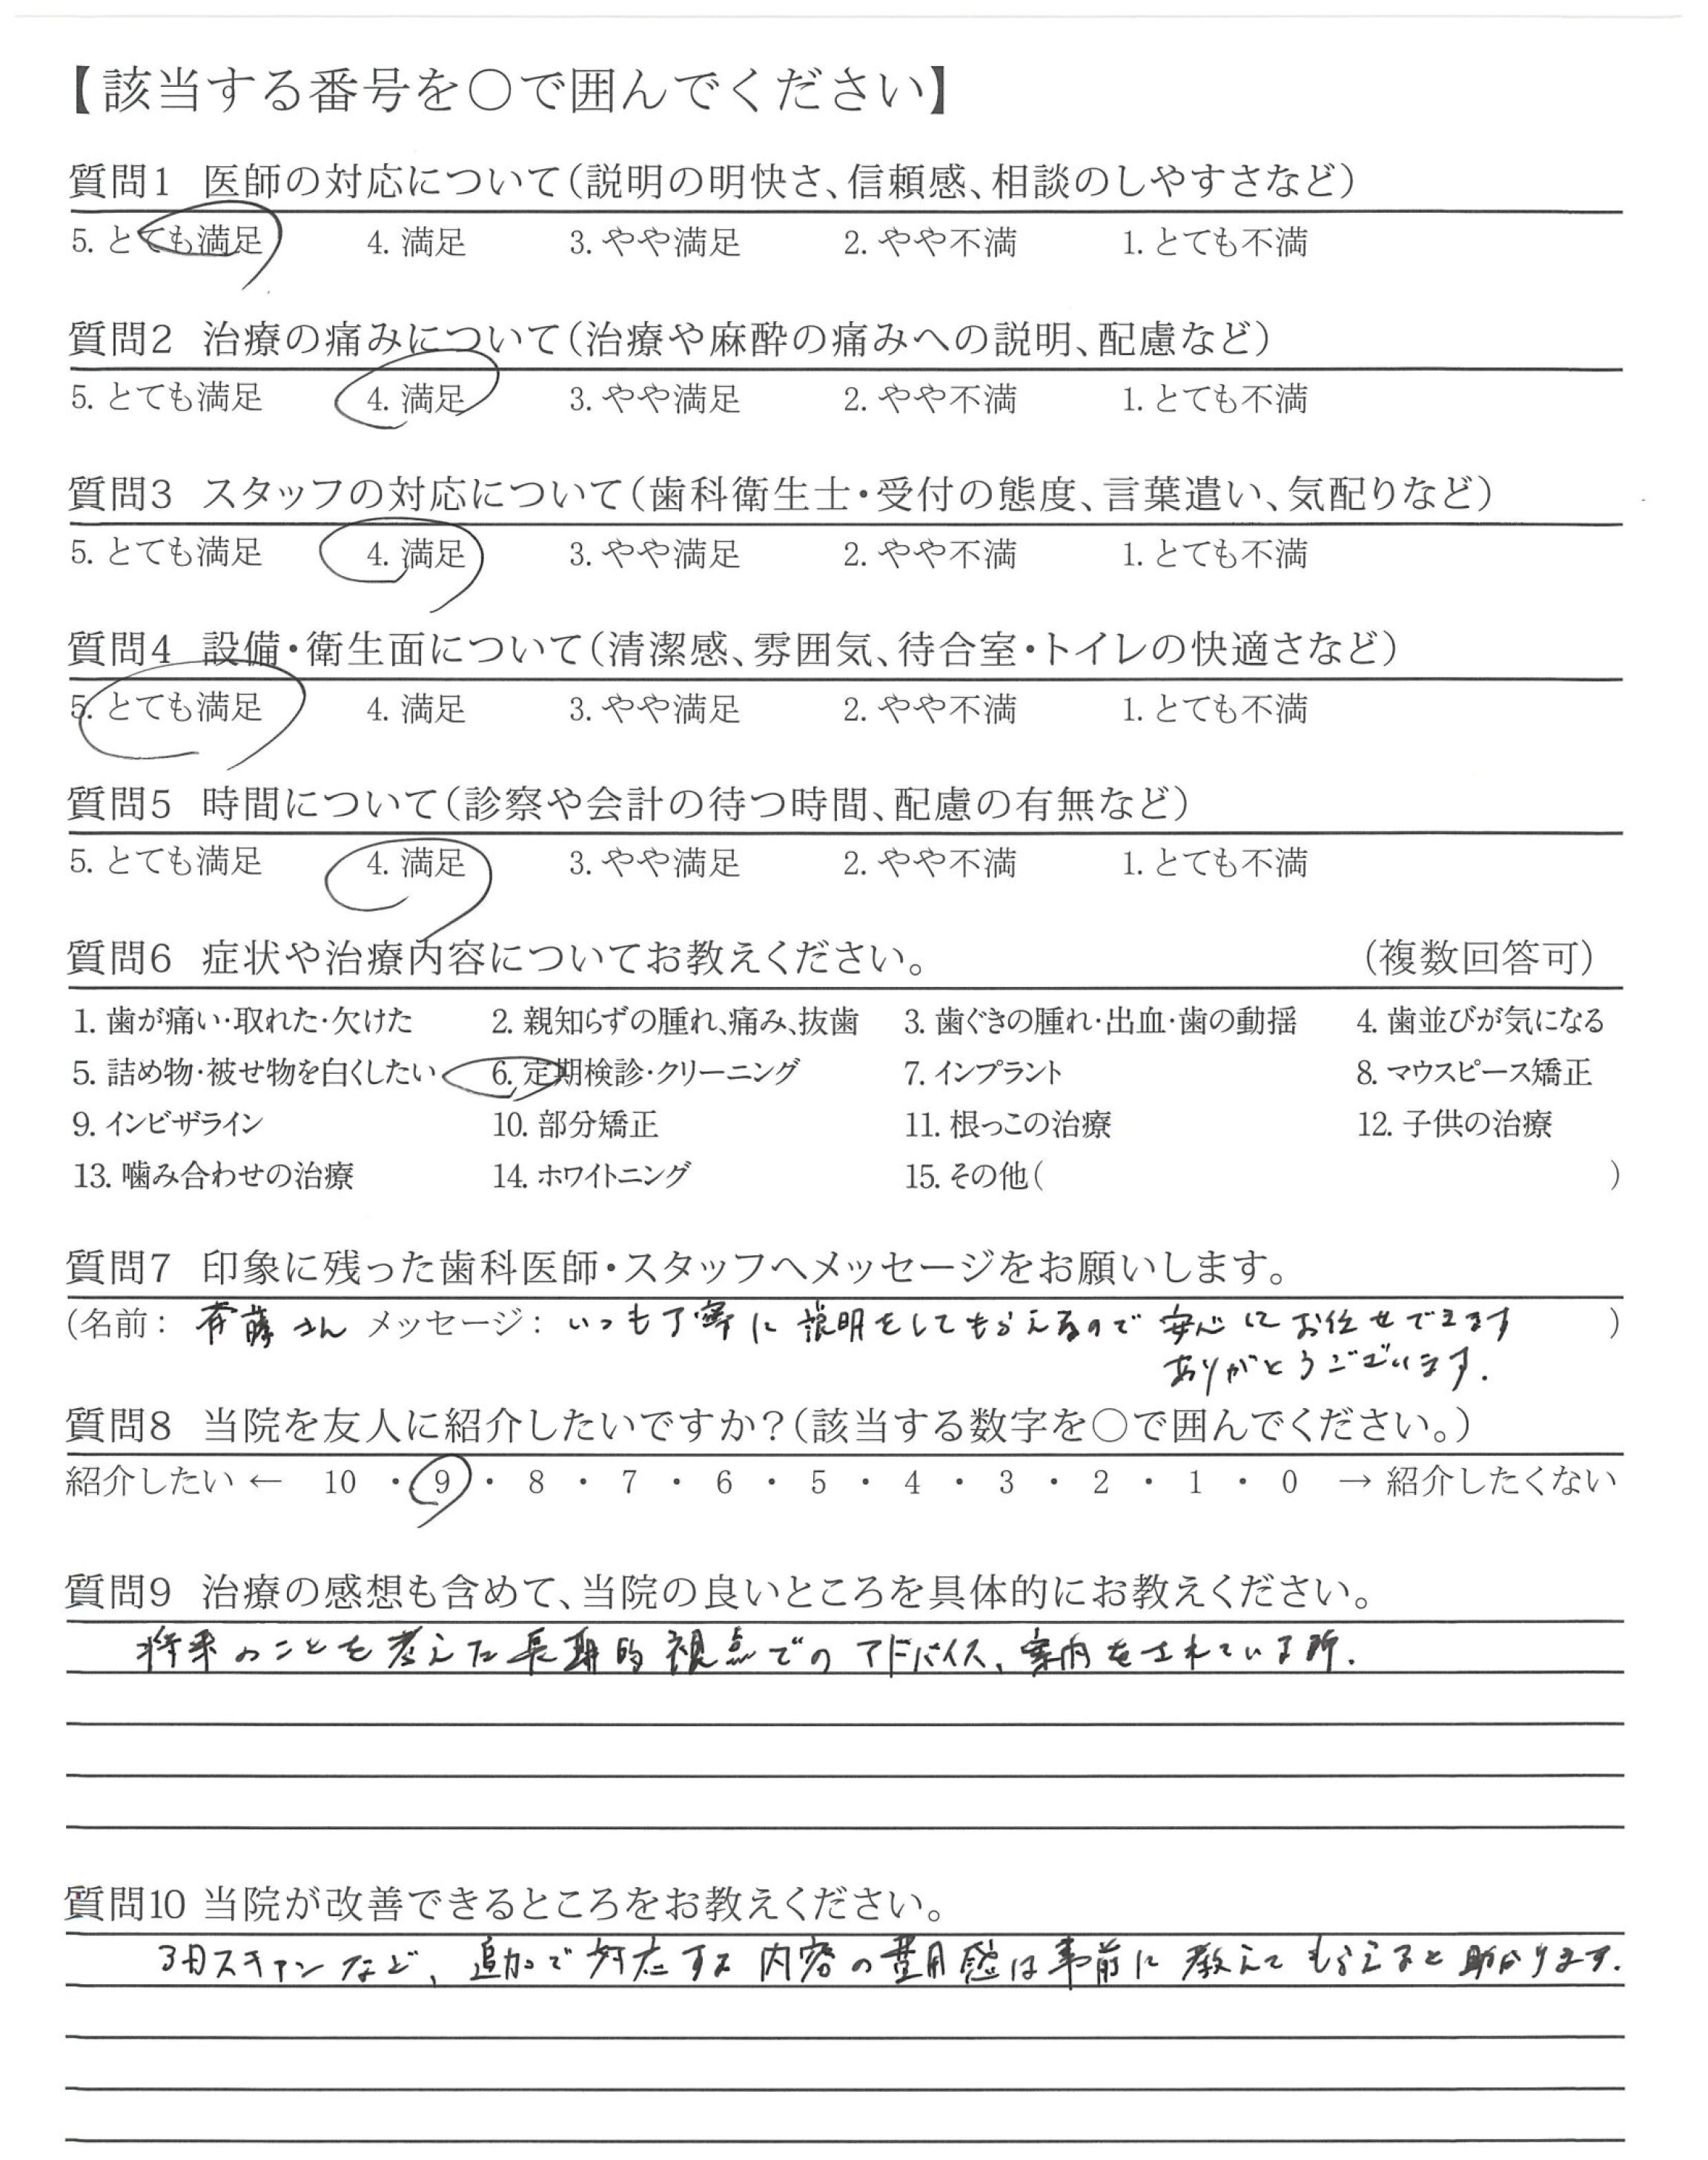 【該当する番号を〇で囲んでください】
質問1 医師の対応について(説明の明快さ、信頼感、相談のしやすさなど)
5. とても満足 4. 満足 3. やや満足 2. やや不満 1. とても不満
質問2 治療の痛みについて(治療や麻酔の痛みへの説明、配慮など)
5. とても満足 4. 満足 3. やや満足 2. やや不満 1. とても不満
質問3 スタッフの対応について(歯科衛生士・受付の態度、言葉遣い、気配りなど)
5. とても満足 4. 満足 3. やや満足 2. やや不満 1. とても不満
質問4 設備・衛生面について(清潔感、雰囲気、待合室・トイレの快適さなど)
5. とても満足 4. 満足 3. やや満足 2. やや不満 1. とても不満
質問5 時間について(診察や会計の待つ時間、配慮の有無など)
5. とても満足 4. 満足 3. やや満足 2. やや不満 1. とても不満
質問6 症状や治療内容についてお教えください。 (複数回答可)
1. 歯が痛い・取れた・欠けた 2. 親知らずの腫れ、痛み、抜歯 3. 歯ぐきの腫れ・出血・歯の動揺 4. 歯並びが気になる
5. 詰め物・被せ物を白くしたい 6. 定期検診・クリーニング 7. インプラント 8. マウスピース矯正
9. インビザライン 10. 部分矯正 11. 根っこの治療 12. 子供の治療
13. 噛み合わせの治療 14. ホワイトニング 15. その他( )
質問7 印象に残った歯科医師・スタッフへメッセージをお願いします。
(名前: 斉藤さん メッセージ: いつも丁寧に説明をしてもらえるので安心してお任せできます )
ありがとうございます.
質問8 当院を友人に紹介したいですか?(該当する数字を〇で囲んでください。)
紹介したい ← 10 ・ 9 ・ 8 ・ 7 ・ 6 ・ 5 ・ 4 ・ 3 ・ 2 ・ 1 ・ 0 → 紹介したくない
質問9 治療の感想も含めて、当院の良いところを具体的にお教えください。
将来のことを考えた長期的視点でのアドバイス、案内をされている所.
質問10 当院が改善できるところをお教えください。
スキャンなど、追加で対応する内容の費用感は事前に教えてもらえると助かります.